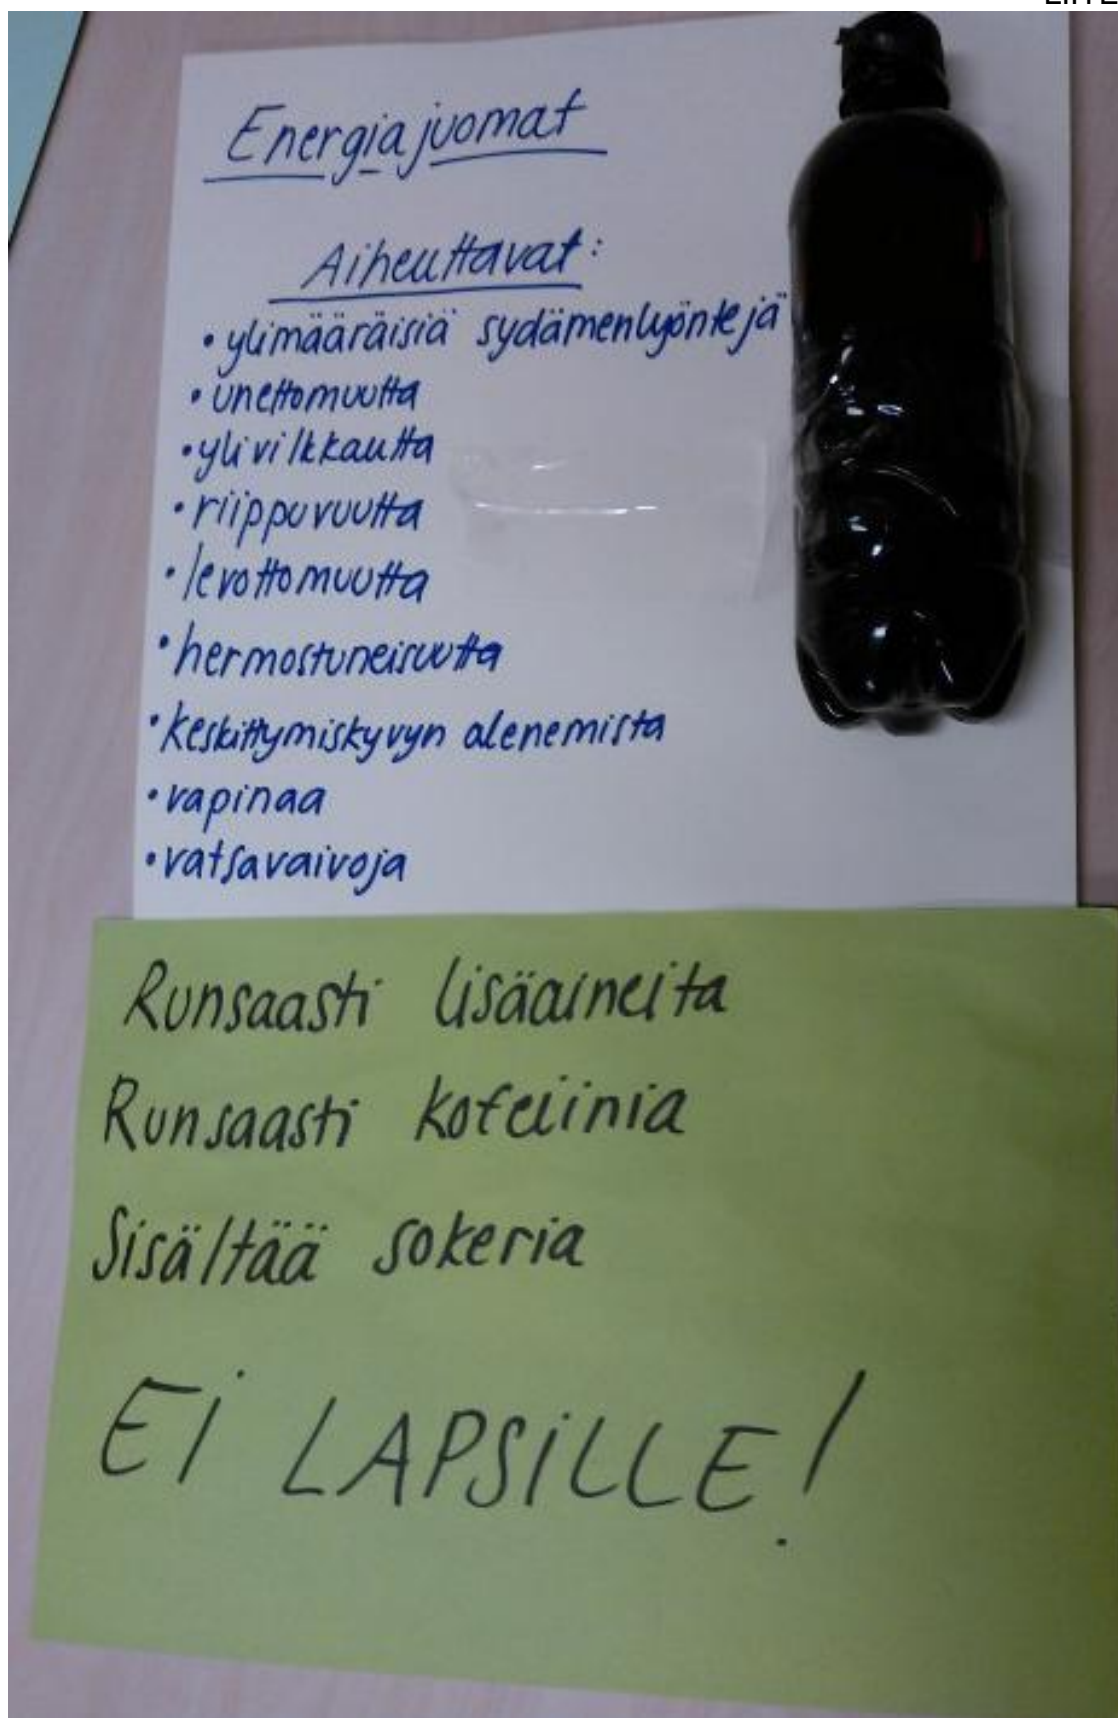 Energiajuomat
Aiheuttavat:
• ylimääräisiä sydämenlyöntejä
• unettomuutta
• ylivilkkautta
• riippuvuutta
• levottomuutta
• hermostuneisuutta
• keskittymiskyvyn alenemista
• vapinaa
• vatsavaivoja
Runsaasti lisäaineita
Runsaasti kofeiinia
Sisältää sokeria
Ei LAPSiLLE!